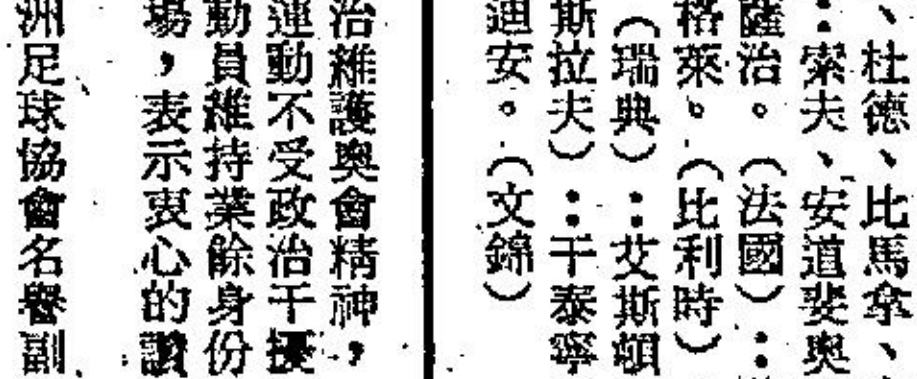 、杜德、比馬拿、
：索夫、安道斐奧
薩治。（法國）：
格萊。（比利時）
（瑞典）：艾斯頓
斯拉夫）：干泰寧
迪安。（文錦）
治維護奧會精神，
運動不受政治干擾
動員維持業餘身份
場，表示衷心的讚
洲足球協會名譽副